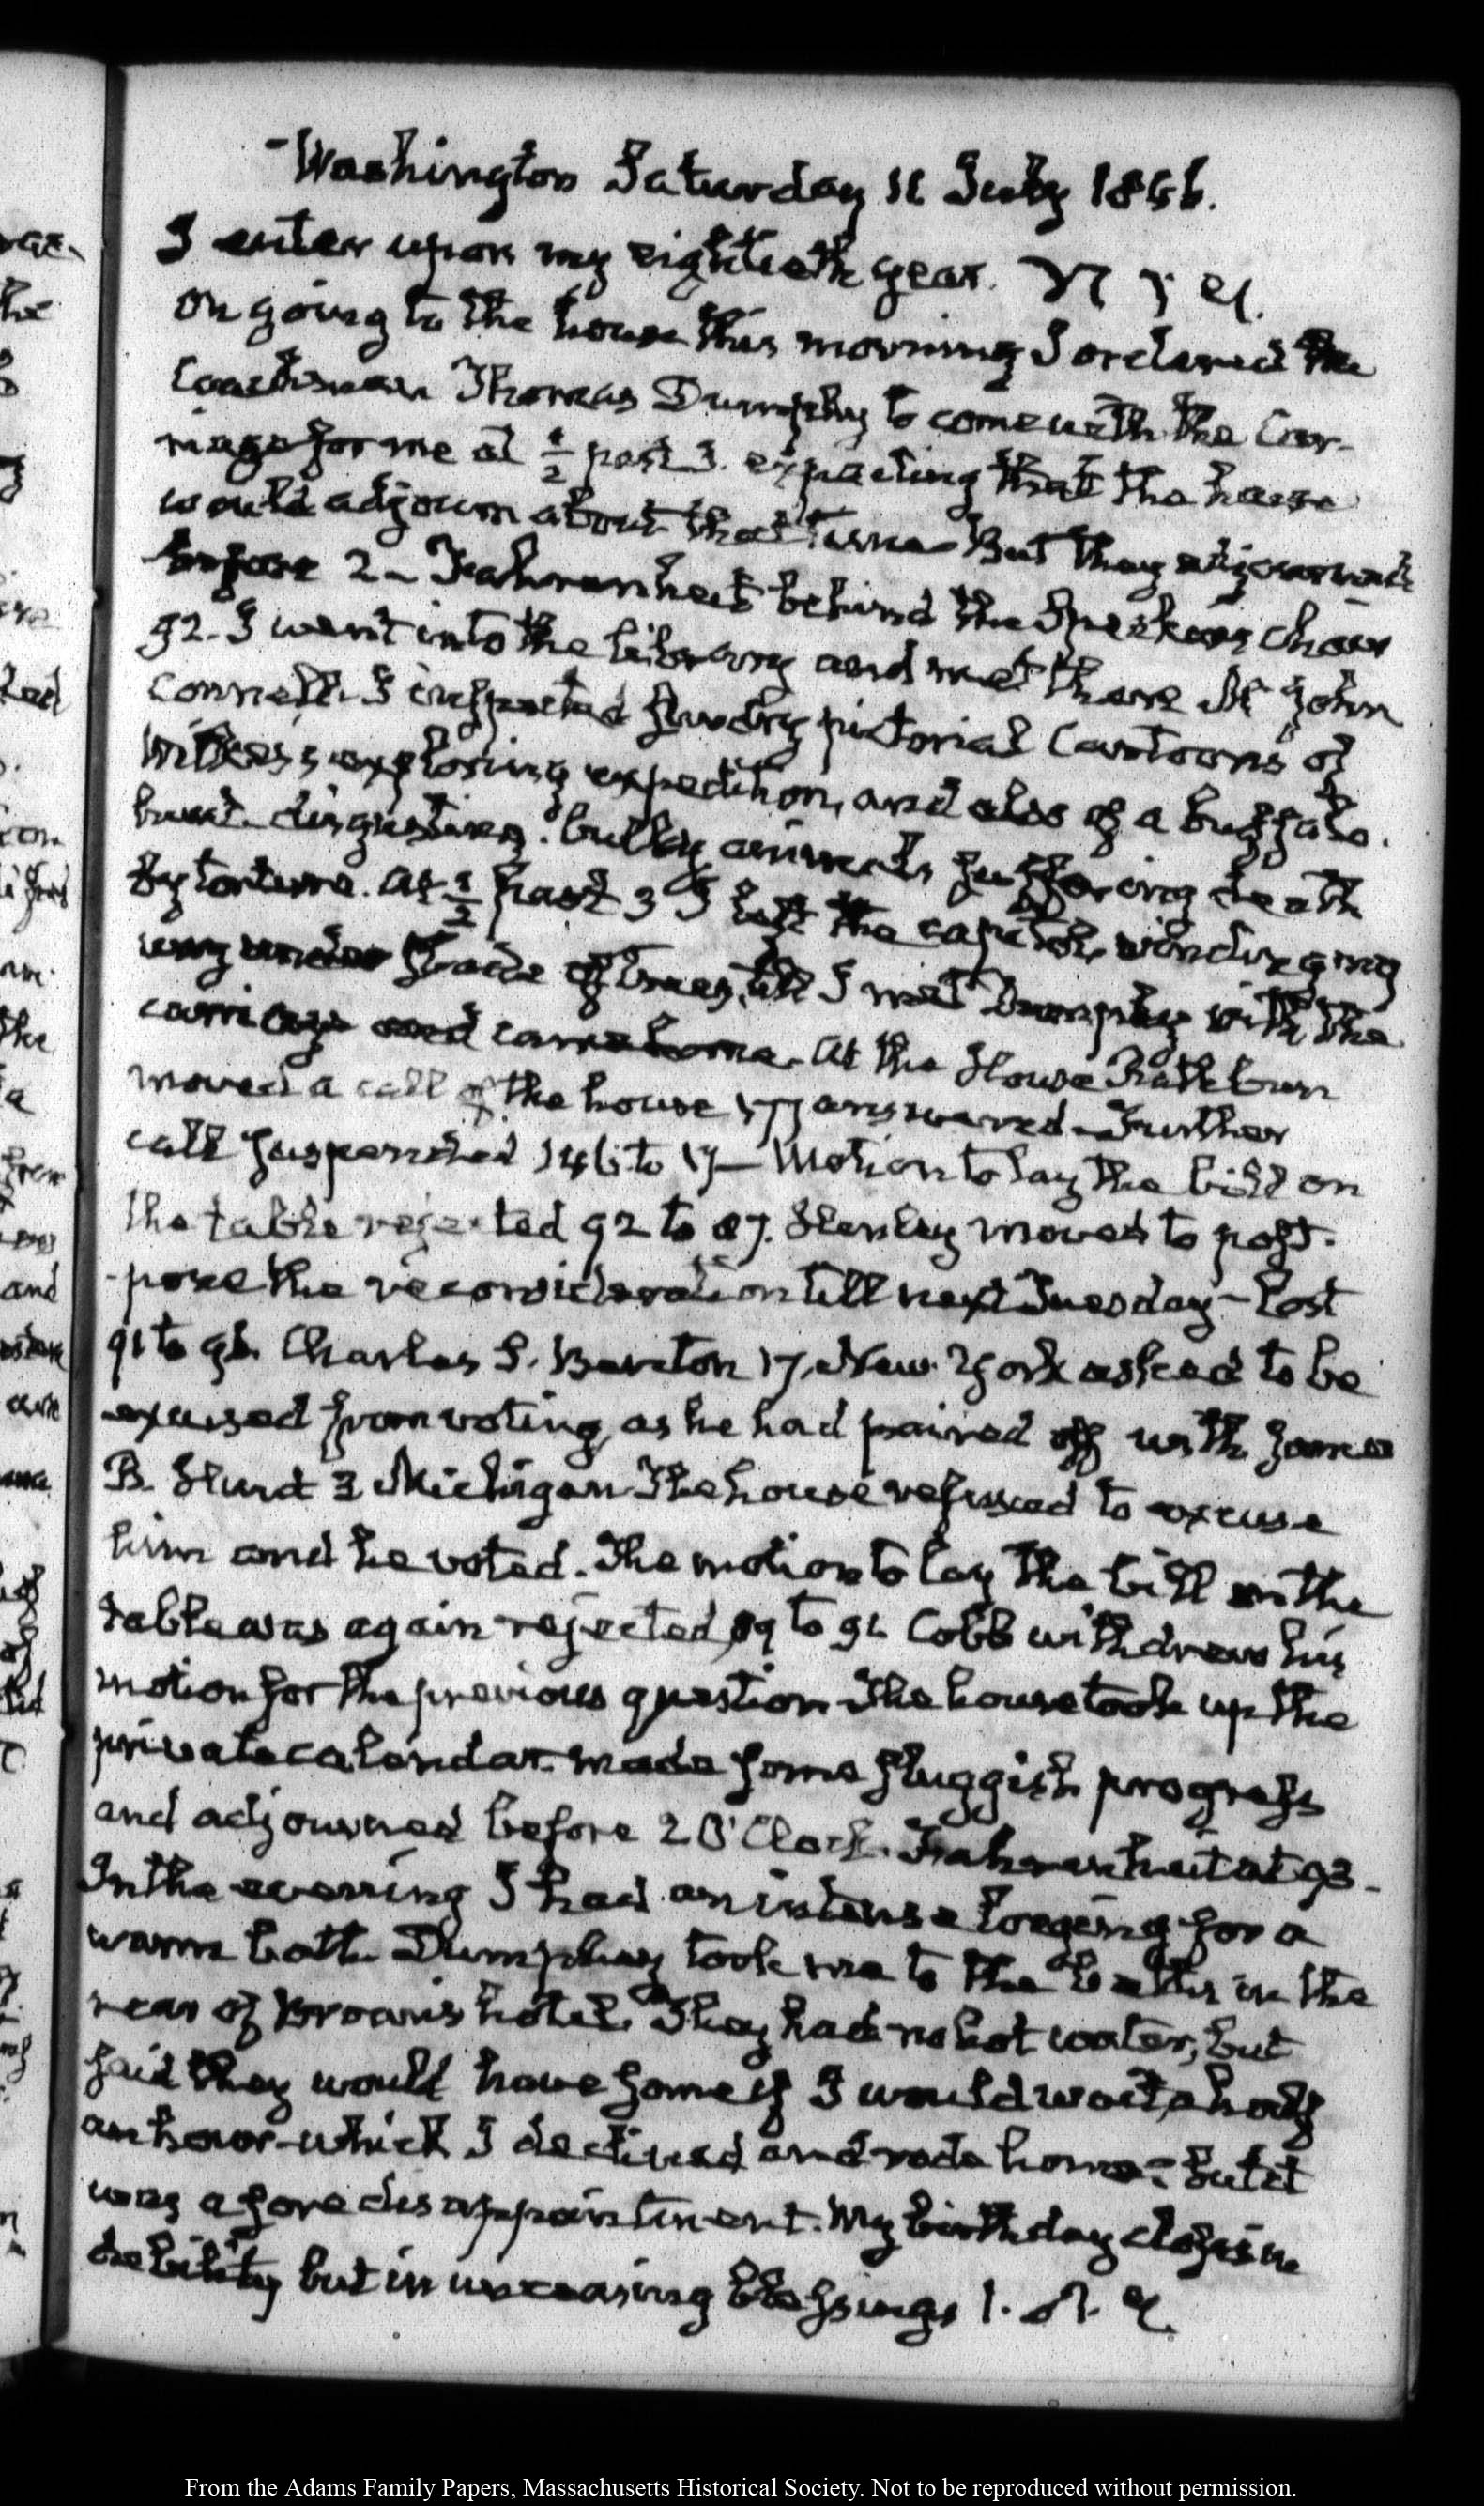 Washington Saturday 11 July 1846.
I enter upon my eightieth year.
On going to the house this morning I ordered the
Coachman Thomas Dumphy to come with the Car-
riage for me at ½ past 3. expecting that the house
would adjourn about that time — But they adjourned
before 2 — Fahrenheit behind the Speakers chair
92. I went into the library and met there Mr John
Connell. I inspected sundry pictorial Cartoons of
Wilkes's exploring expedition, and also of a buffalo.
hunt. disgusting. bulky animals suffering death
by torture. At ½ past 3 I left the capitol, winding my
way under shade of trees, till I met Dumphy with the
carriage and came home. At the House Rathbun
moved a call of the house 177 answered — Further
call suspended 146 to 17 — Motion to lay the bill on
the table rejected 92 to 87. Henley moved to post-
-pone the reconsideration till next Tuesday — Lost
91 to 96. Charles S. Benton 17. New York asked to be
excused from voting, as he had paired off with James
B. Hunt 3 Michigan The house refused to excuse
him and he voted. The motion to lay the bill on the
table was again rejected, 89 to 91 Cobb withdrew his
motion for the previous question The house took up the
private calendar. made some sluggish progress
and adjourned before 2 O'Clock. Fahrenheit at 93 —
In the evening I had an intense longing for a
warm bath. Dumphy took me to the baths in the
rear of Brown's hotel. They had no hot water, but
said they would have some if I would wait, a half
an hour — which I declined and rode home: but it
was a sore disappointment. My birthday closes in
debility but in unceasing blessings
From the Adams Family Papers, Massachusetts Historical Society. Not to be reproduced without permission.